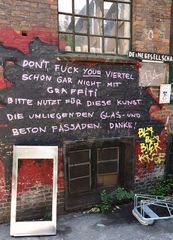 DEINE GESELLSCHA
DON'T FUCK YOUR VIERTEL
SCHON GAR NICHT MIT
GRAFFITI
BITTE NUTZT FÜR DIESE KUNST
DIE UMLIEGENDEN GLAS- UND
BETON FASSADEN. DANKE!